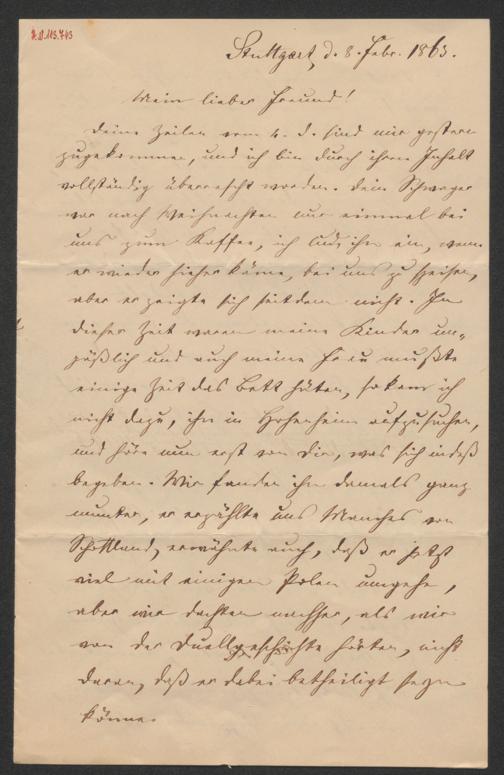 H.I.N. 115.743
Stuttgart, d. 8. Febr. 1863.
Mein lieber Freund!
Deine Zeilen vom 4. d. sind mir gestern
zugekommen, und ich bin durch ihren Inhalt
vollständig überrascht worden. Dein Schwager
war nach Weihnachten nur einmal bei
uns zum Kaffee, ich lud ihn ein, wenn
er wieder hieher käme, bei uns zu speisen,
aber er zeigte sich seitdem nicht. In
dieser Zeit waren meine Kinder un-
päßlich und auch meine Frau mußte
einige Zeit das Bett hüten, so kam ich
nicht dazu, ihn in Hohenheim aufzusuchen,
und höre nun erst von Dir, was sich indeß
begeben. Wir fanden ihn damals ganz
munter, er erzählte uns Manches von
Schottland, erwähnte auch, daß er jetzt
viel mit einigen Polen umgehe,
aber wir dachten nachher, als wir
von der Duellgeschichte hörten, nicht
daran, daß er dabei betheiligt seyn
könne.